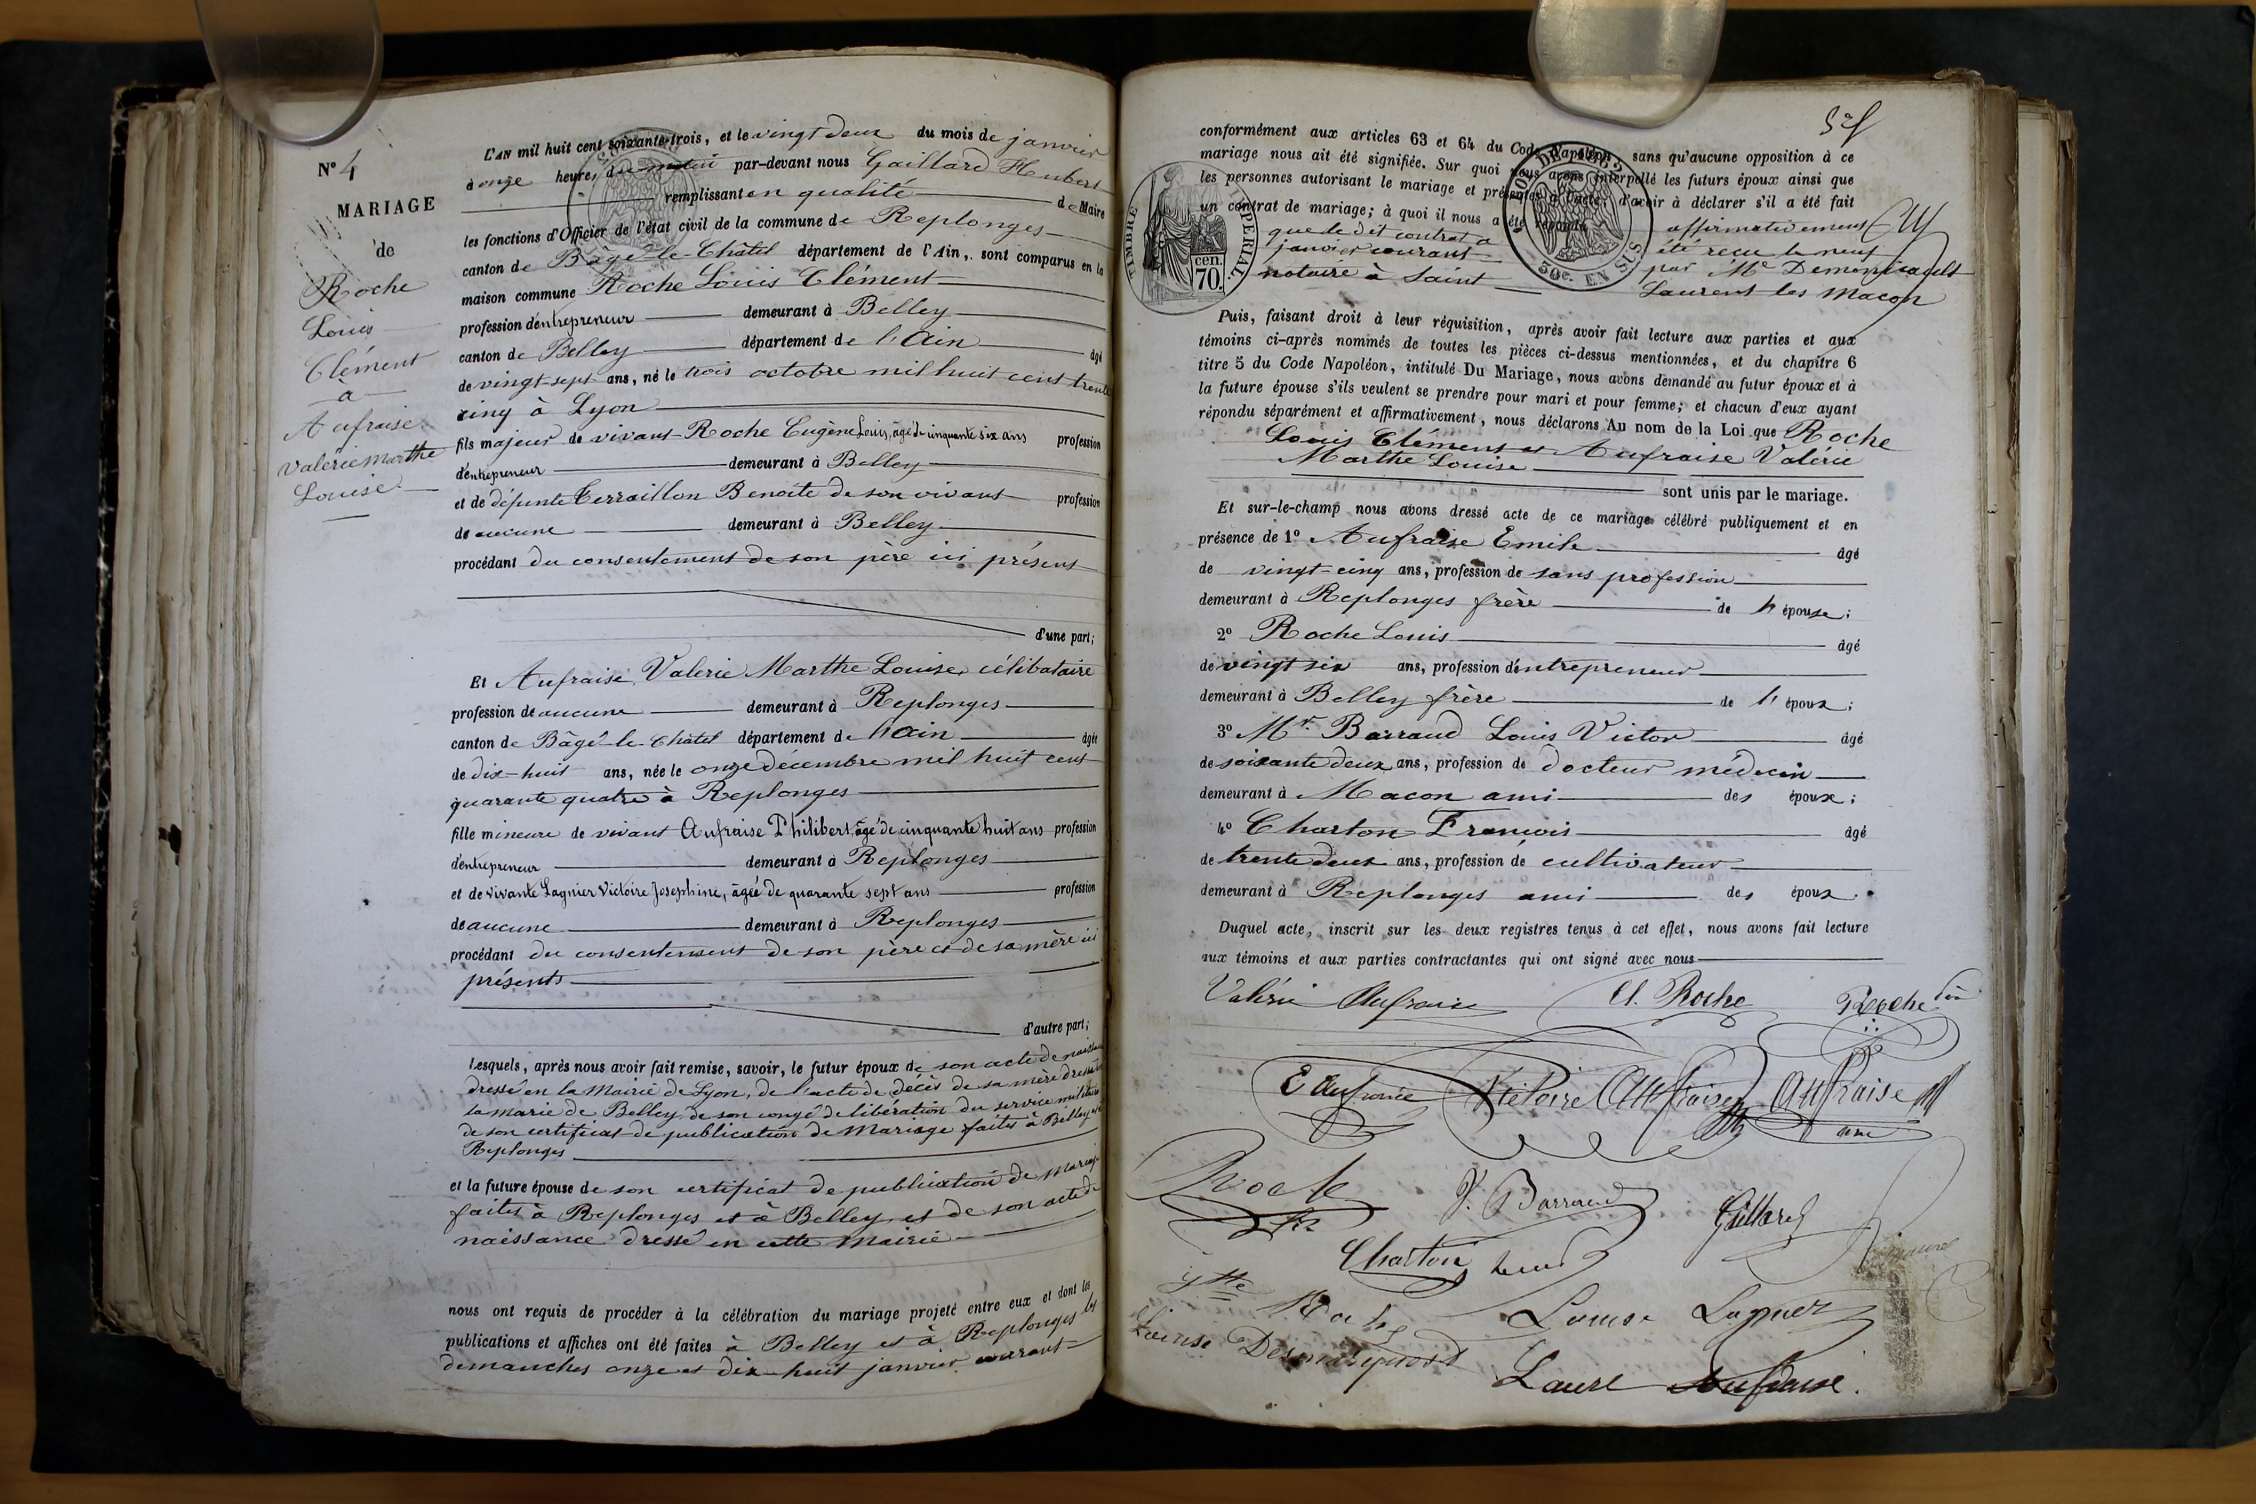 N° 4
MARIAGE
de
Roche
Louis
Clément
à
Aufraise
Valérie Marthe
Louise
L'AN mil huit cent soixante-trois, et le vingt deux du mois de janvier
à onze heures du matin par-devant nous Gaillard Hubert
remplissant en qualité de Maire
les fonctions d'Officier de l'état civil de la commune de Replonges
canton de Bâgé-le-Châtel département de l'Ain, sont comparus en la
maison commune Roche Louis Clément
profession d'entrepreneur demeurant à Belley
canton de Belley département de l'Ain âgé
de vingt-sept ans, né le trois octobre mil huit cent trente
cinq à Lyon
fils majeur de vivant Roche Eugène Louis, âgé de cinquante six ans profession
d'entrepreneur demeurant à Belley
et de défunte Terraillon Benoite de son vivant profession
de aucune demeurant à Belley
procédant du consentement de son père ici présent
d'une part;
Et Aufraise Valerie Marthe Louise, célibataire
profession de aucune demeurant à Replonges
canton de Bâgé-le-Châtel département de l'Ain âgée
de dix-huit ans, née le onze décembre mil huit cent
quarante quatre à Replonges
fille mineure de vivant Aufraise Philibert, âgé de cinquante huit ans profession
d'entrepreneur demeurant à Replonges
et de vivante Lagnier Victoire Josephine, âgée de quarante sept ans profession
de aucune demeurant à Replonges
procédant du consentement de son père et de sa mère ici
présents
d'autre part;
Lesquels, après nous avoir fait remise, savoir, le futur époux de son acte de naissance
dressé en la Mairie de Lyon, de l'acte de décès de sa mère dressé à
la marie de Belley, de son congé de libération du service militaire
de son certificat de publication de Mariage faites à Belley et à
Replonges
et la future épouse de son certificat de publication de Mariage
faites à Replonges et à Belley et de son acte de
naissance dressé en cette Mairie
nous ont requis de procéder à la célébration du mariage projeté entre eux et dont les
publications et affiches ont été faites à Belley et à Replonges les
dimanches onze et dix-huit janvier courant
conformément aux articles 63 et 64 du Code Napoléon, sans qu'aucune opposition à ce
mariage nous ait été signifiée. Sur quoi nous avons interpellé les futurs époux ainsi que
les personnes autorisant le mariage et présentes à l'acte, d'avoir à déclarer s'il a été fait
un contrat de mariage; à quoi il nous a été répondu affirmativement
que le dit contrat a été reçu le neuf
janvier courant par Me
notaire à Saint Laurent les Macon
TIMBRE IMPERIAL
cen.
70.
50c. EN SUS
Puis, faisant droit à leur réquisition, après avoir fait lecture aux parties et aux
témoins ci-après nommés de toutes les pièces ci-dessus mentionnées, et du chapitre 6
titre 5 du Code Napoléon, intitulé Du Mariage, nous avons demandé au futur époux et à
la future épouse s'ils veulent se prendre pour mari et pour femme; et chacun d'eux ayant
répondu séparément et affirmativement, nous déclarons Au nom de la Loi que Roche
Louis Clément et Aufraise Valérie
Marthe Louise
sont unis par le mariage.
Et sur-le-champ nous avons dressé acte de ce mariage célébré publiquement et en
présence de 1° Aufraise Emile âgé
de vingt-cinq ans, profession de sans profession
demeurant à Replonges frère de l'épouse;
2° Roche Louis âgé
de vingt six ans, profession d'entrepreneur
demeurant à Belley frère de l'époux;
3° Mr. Barraud Louis Victor âgé
de soixante deux ans, profession de docteur médecin
demeurant à Macon ami des époux;
4° Charton François âgé
de trente deux ans, profession de cultivateur
demeurant à Replonges ami des époux.
Duquel acte, inscrit sur les deux registres tenus à cet effet, nous avons fait lecture
aux témoins et aux parties contractantes qui ont signé avec nous
Valérie Aufraise Cl. Roche Roche
E Aufraise Victoire Aufraise Aufraise
Roche V. Barraud Gaillard
Charton
Roche Louise Lagnier
Louise
Laure Aufraise.